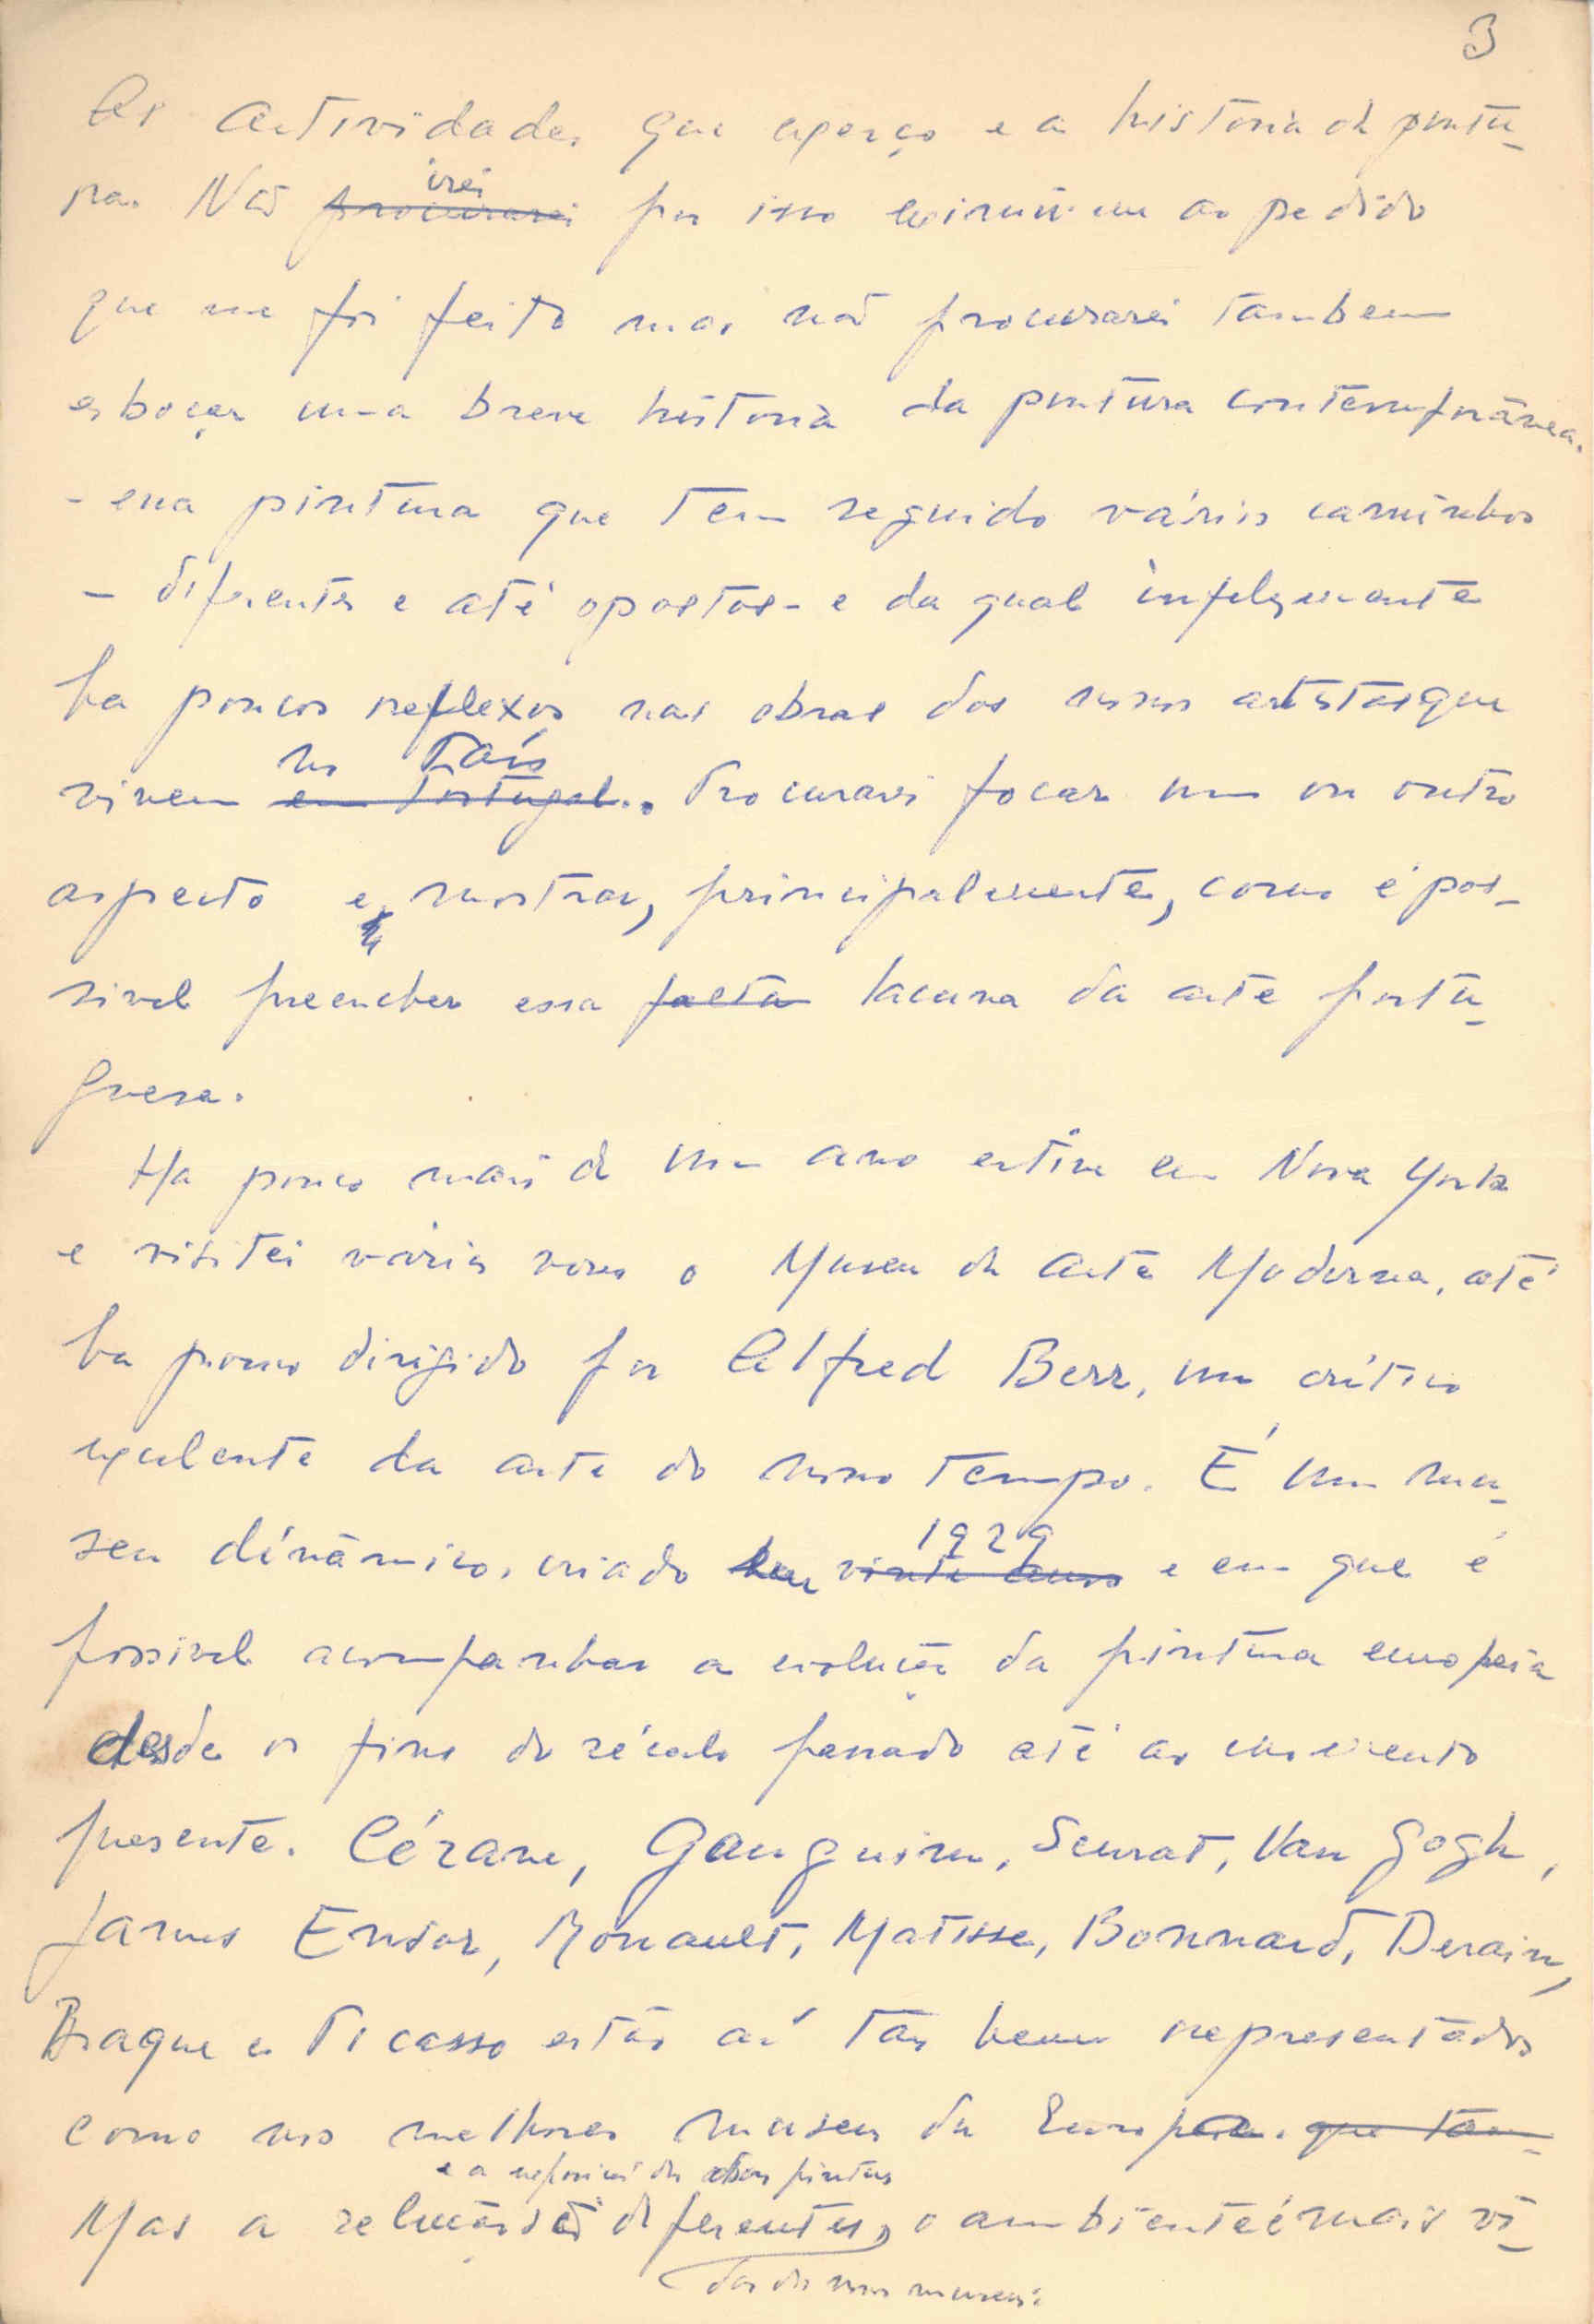 3
As actividades que exerço e a historia da pintu-
ra. Não irei
procurarei por isso eximir-me ao pedido
que me foi feito mas não procurarei tambem
esboçar uma breve historia da pintura contemporânea.
- essa pintura que tem seguido vários caminhos
- diferentes e até opostos - e da qual infelizmente
ha poucos reflexos nas obras dos nossos artistas que
no País
vivem em Portugal.. Procurarei focar um ou outro
aspecto e, mostrar, principalmente, como é pos-
sivel preencher essa falta lacuna da arte portu-
guesa.
Ha pouco mais de um ano estive em Nova York
e visitei várias vezes o Museu de Arte Moderna, até
ha pouco dirigido por Alfred Berr, um crítico
excelente da arte do nosso tempo. É um mu-
1929
seu dinâmico, criado em vinte anos e em que é
possivel acompanhar a evolução da pintura europeia
desde os fins do século passado até ao momento
presente. Cézane, Gauguin, Seurat, Van Gogh,
James Ensor, Rouault, Matisse, Bonnard, Derain,
Braque e Picasso estão aí tão bem representados
como nos melhores museus da Europa. que tam-
e a exposição das obras
Mas a selecção são diferentes, o ambiente é mais vi-
das dos museus